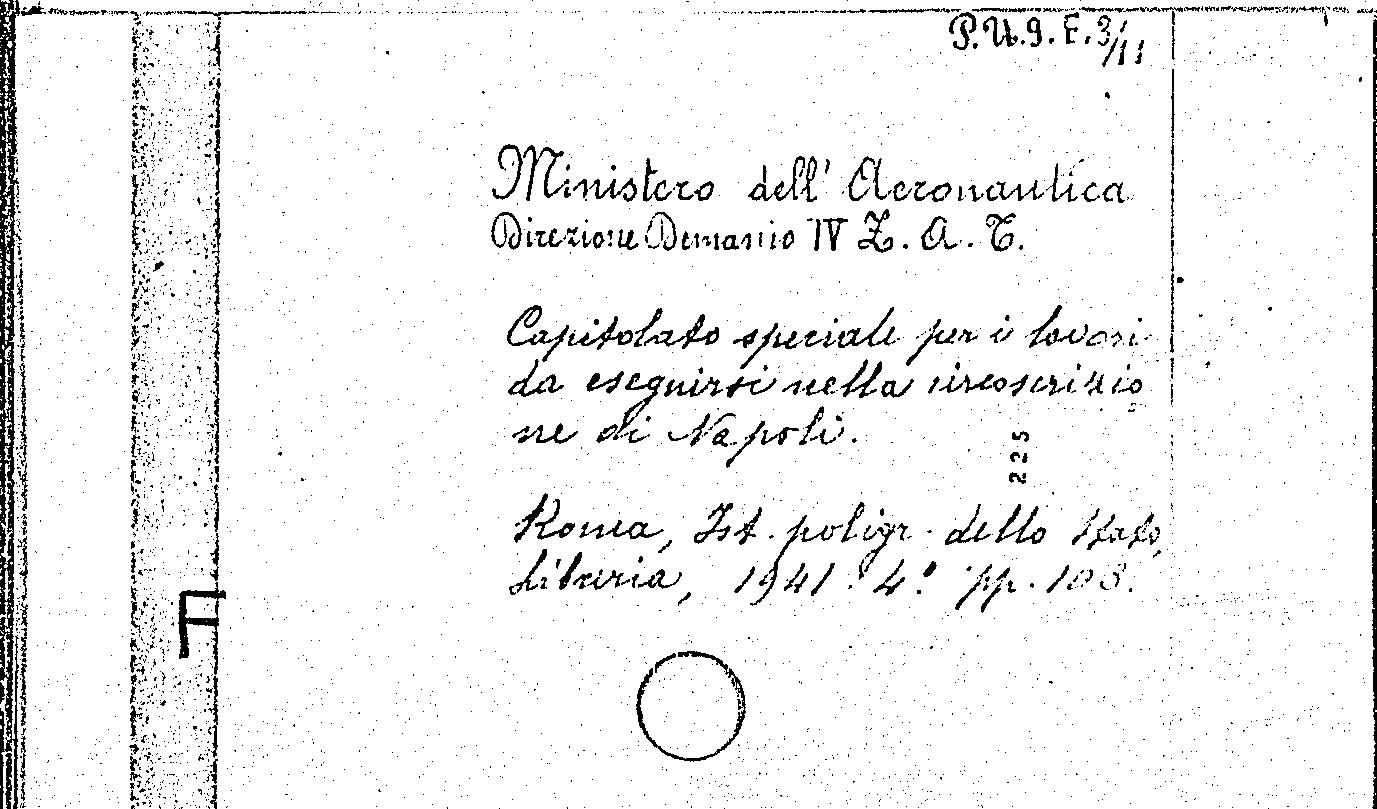 P.U.g.E.3/11
Ministero dell' Aeronautica
Direzione Demanio IV Z.A.T.
Capitolato speciale per i lavori
da eseguirsi nella circoscrizio
ne di Napoli.
225
Roma, Ist. poligr. dello Stato,
Libreria, 1941. 4° pp. 103.
F